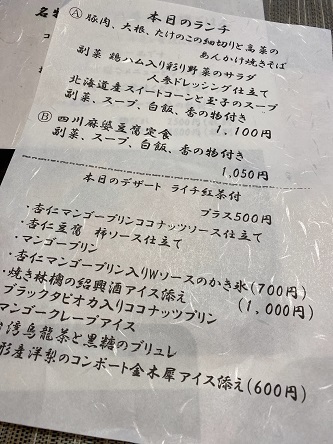 名物
本日のランチ
Ⓐ 豚肉、大根、たけのこの細切りと高菜の
あんかけ焼きそば
副菜 鶏ハム入り彩り野菜のサラダ
人参ドレッシング仕立て
北海道産スイートコーンと玉子のスープ
副菜、スープ、白飯、香の物付き
1,100円
Ⓑ 四川麻婆豆腐定食
副菜、スープ、白飯、香の物付き
1,050円
本日のデザート ライチ紅茶付
プラス500円
・杏仁マンゴープリンココナッツソース仕立て
・杏仁豆腐 柿ソース仕立て
・マンゴープリン
・杏仁マンゴープリン入りWソースのかき氷(700円)
・焼き林檎の紹興酒アイス添え (1,000円)
ブラックタピオカ入りココナッツプリン
マンゴークレープアイス
烏龍茶と黒糖のブリュレ
形産洋梨のコンポート金木犀アイス添え(600円)